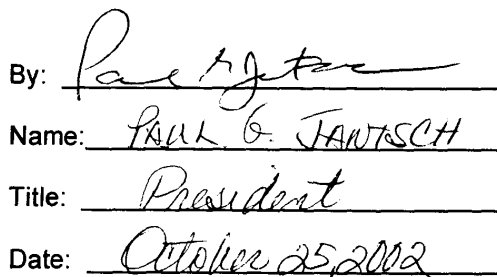 By: Paul G Jantsch
Name: PAUL G. JANTSCH
Title: President
Date: October 25, 2002